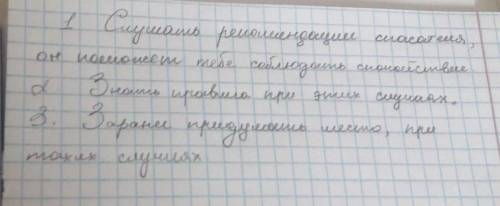 1 Слушать рекомендации спасателя,
он поможет тебе соблюдать спокойствие
2 Знать правила при этих случаях.
3. Заране придумать место, при
таких случиях